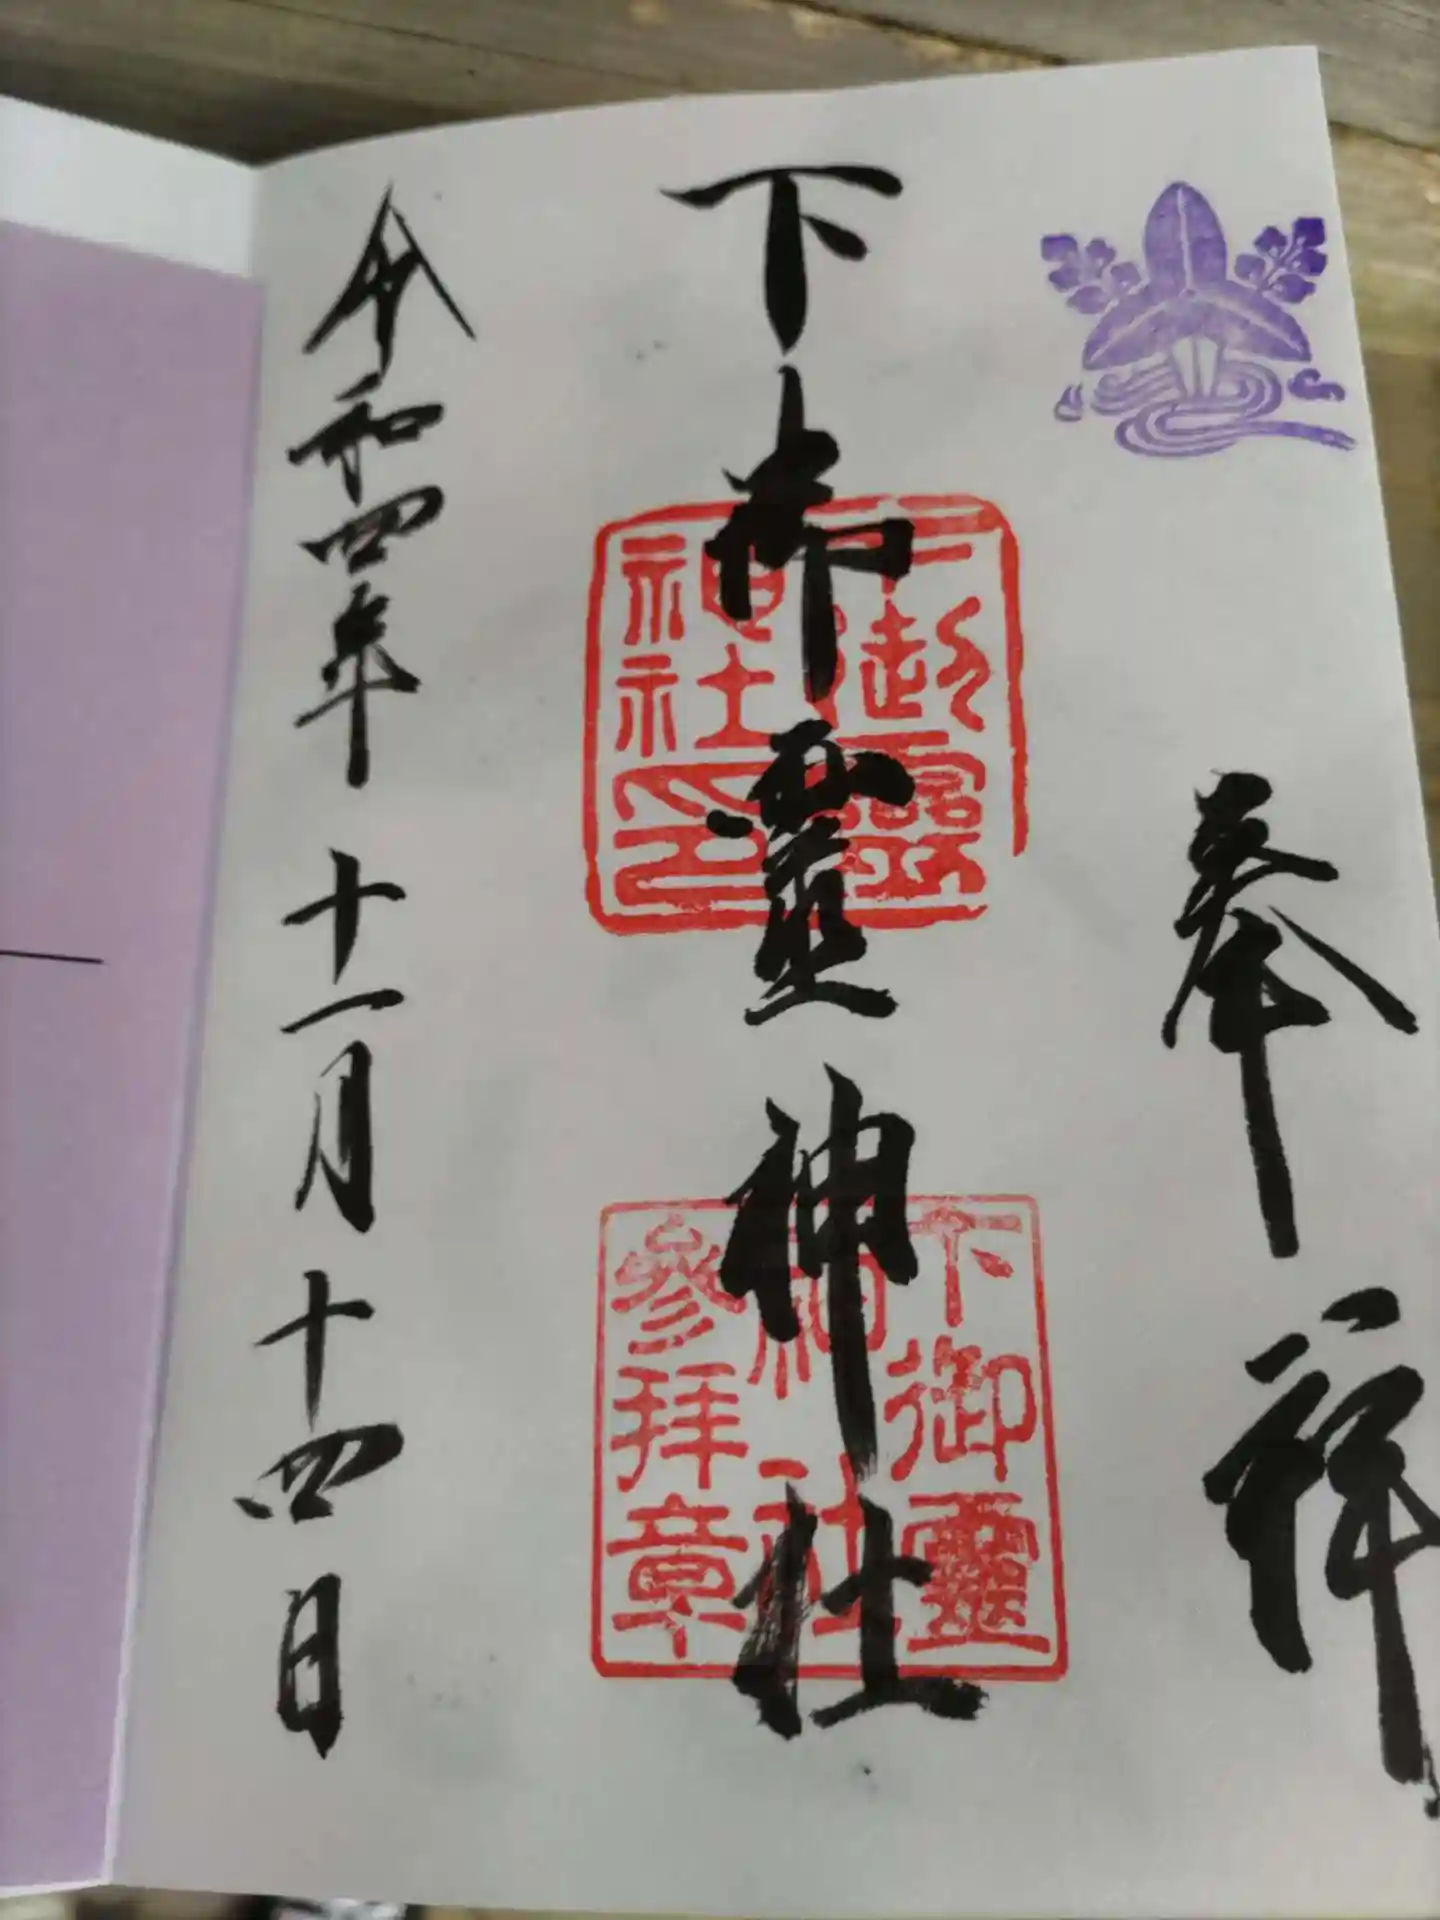 奉拝
下御靈神社
下御靈
神社印
下御靈
神社
參拝章
令和四年十一月十四日